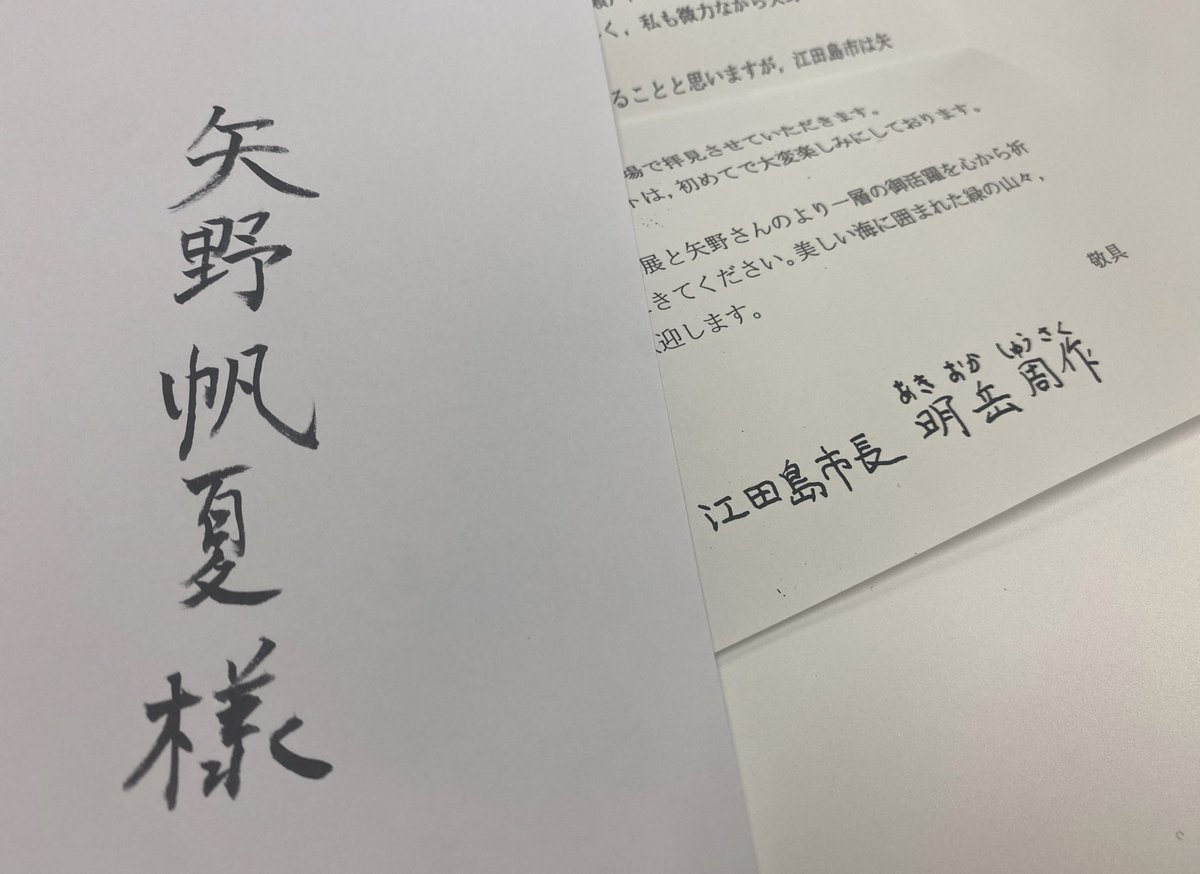 矢野帆夏様
く，私も微力ながら
ることと思いますが，江田島市は矢
場で拝見させていただきます。
トは，初めてで大変楽しみにしております。
展と矢野さんのより一層の御活躍を心から祈
きてください。美しい海に囲まれた緑の山々，
迎します。
敬具
あき おか しゅうさく
江田島市長 明岳周作